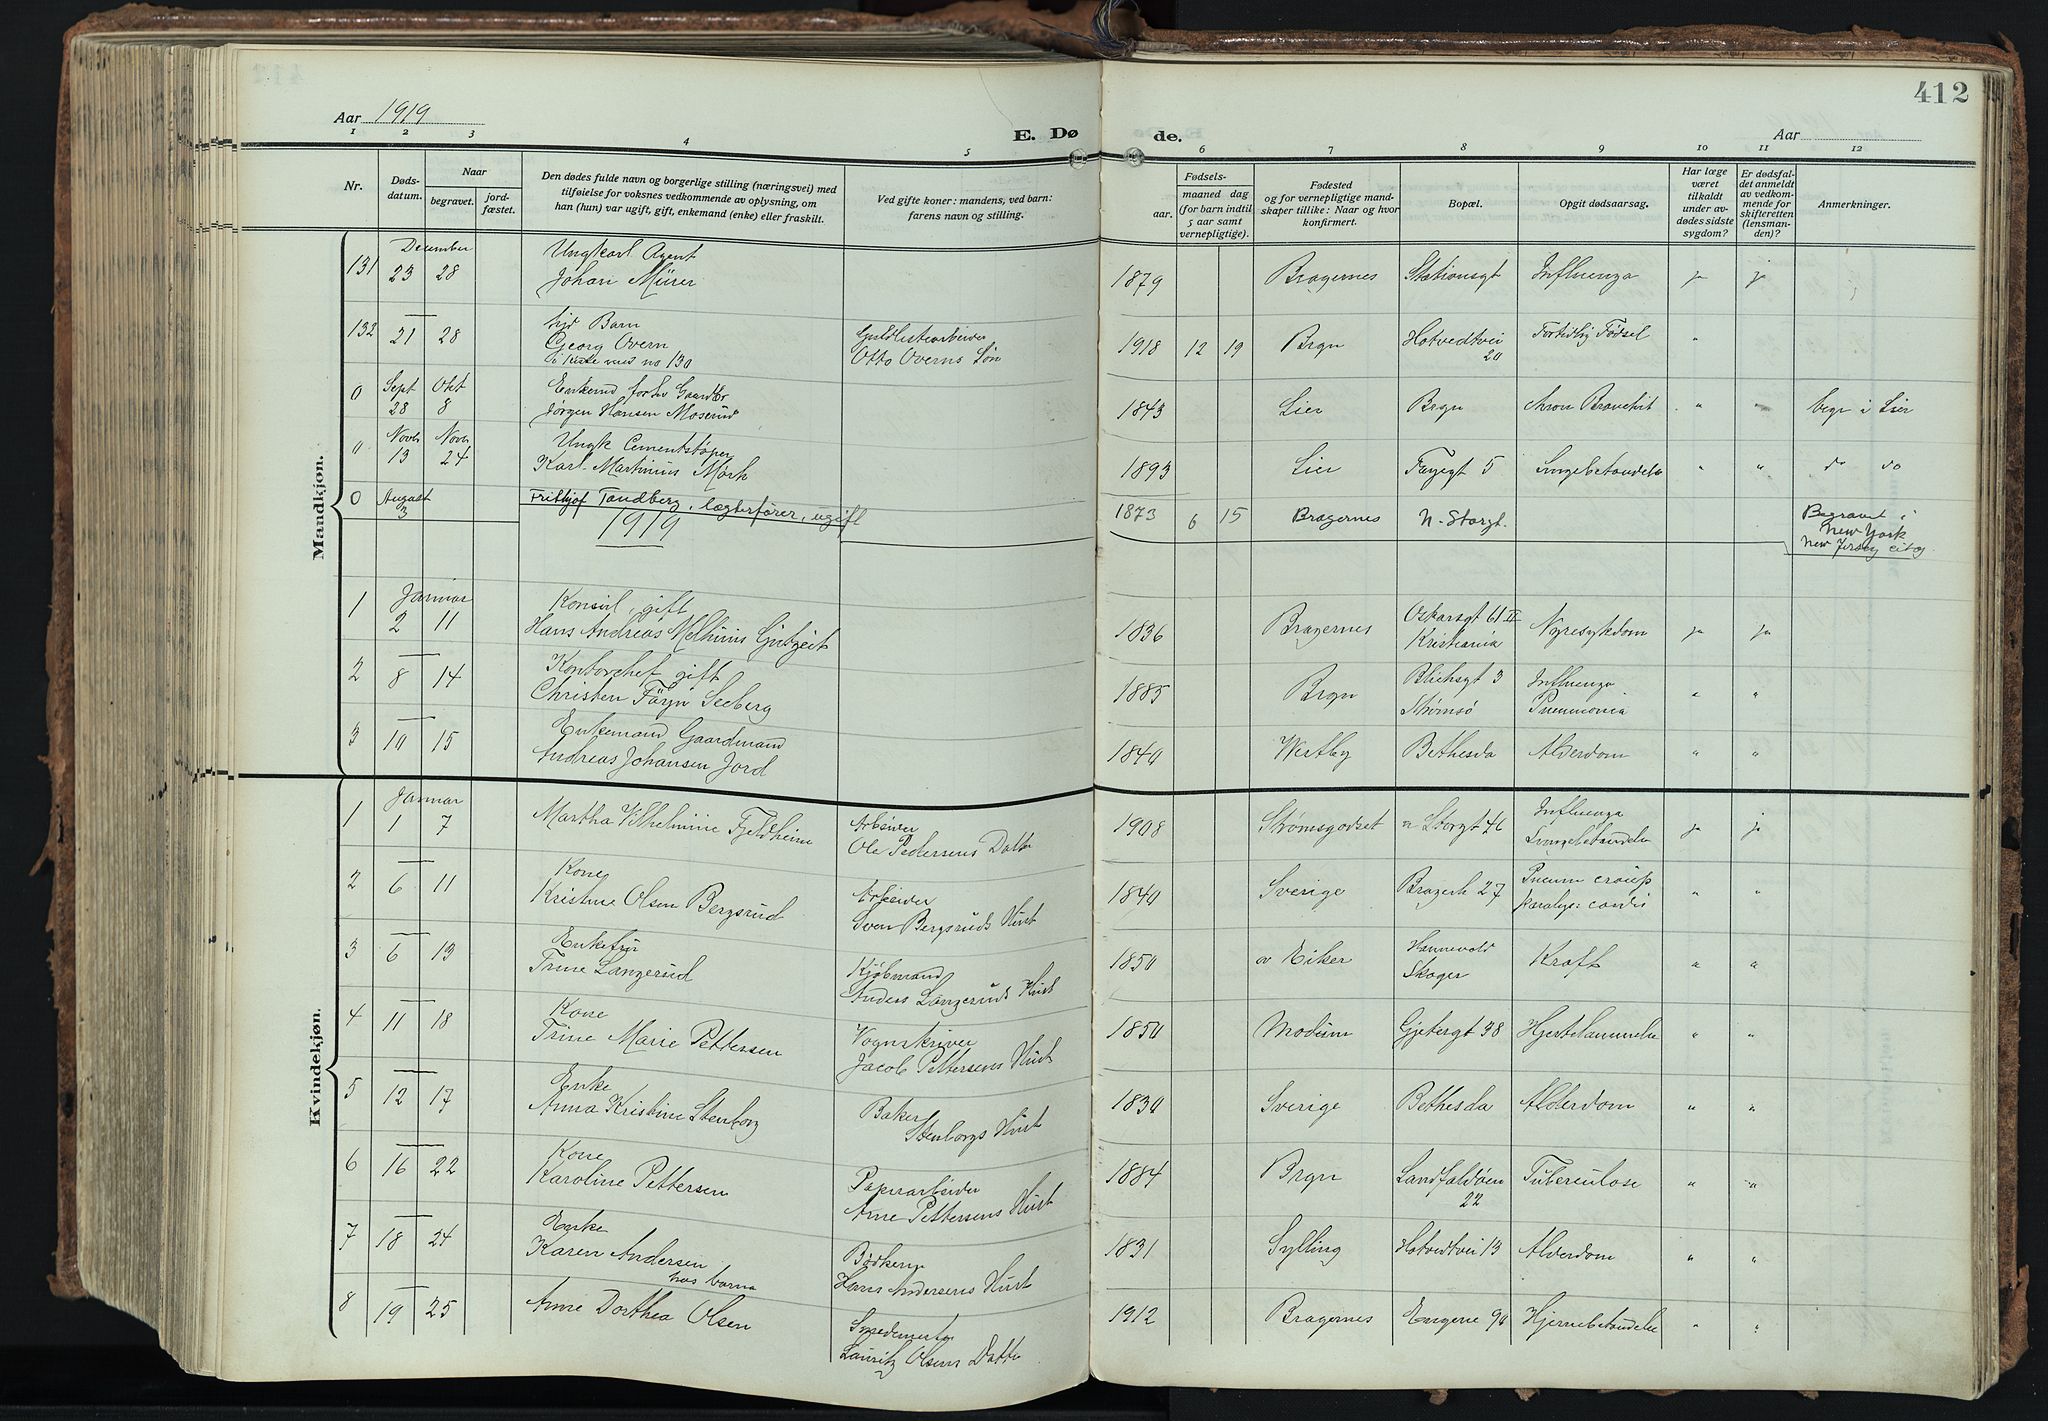 412
Aar 1919
E. Dø
de.
Aar
1 2 3 4 5 6 7 8 9 10 11 12
Nr.
Døds-
datum.
Naar
begravet.
jord-
fæstet.
Den dødes fulde navn og borgerlige stilling (næringsvei) med
tilføielse for voksnes vedkommende av oplysning, om
han (hun) var ugift, gift, enkemand (enke) eller fraskilt.
Ved gifte koner: mandens, ved barn:
farens navn og stilling.
Fødsels-
aar.
maaned dag
(for barn indtil
5 aar samt
vernepligtige).
Fødested
og for vernepligtige mand-
skaper tillike: Naar og hvor
konfirmert.
Bopæl.
Opgit dødsaarsag.
Har læge
været
tilkaldt
under av-
dødes sidste
sygdom?
Er dødsfal-
det anmeldt
av vedkom-
mende for
skifteretten
(lensman-
den)?
Anmerkninger.
Mandkjøn.
December
Ungkarl Agent
131 23 28 Johan Mürer 1879 Bragernes Stationsgt Influenza ja j
Barn
132 21 28 Georg Overn
no 130
Otto Overns Søn
1918 12 19 Brgn Hotvedtvei
20
Fortidlig Fødsel "
Sept Okt
0 28 8 Jørgen Hansen Moserud 1843 Lier Brgn " " begr i Lier
Novb Novb
Ungk Cementstøper
" 13 24 Karl Martinius Mørk 1893 Lier Fayegt 5 " " do do
0 August
3
Frithjof Tandberg, lægterfører, ugift
1873 6 15 Bragernes N. Storgt.
Begravet i
New York
New Jersey city.
1919
Januar
Konsul, gift
1 2 11 Hans Andreas 1836 Bragernes Oskarsgt 61 II
Kristiania
Nyresykdom ja ja
Kontorchef gift
2 8 14 Christen Föyn Seeberg 1885 Brgn Blichsgt 3
Strømsø
Influenza
Pneumonia
" "
Enkemand Gaardmand
3 10 15 Andreas Johansen Jord 1840 Westby Bethesda Alderdom " "
Kvindekjøn.
Januar
1 1 7 Martha Vilhelmine Fjeldheim Arbeider
Ole Pedersens Datter
1908 Strømsgodset Storgt 46 Influenza
Lungebetændelse
ja j
Kone
2 6 11 Kristine Olsen Bergsrud Arbeider
Sven Bergsruds Hust
1840 Sverige Bragerh 27 Pneum croup
paralys: cordis
" "
Enkefru
3 6 13 Trine Langerud Kjøbmand
Anders Langeruds Hust
1850 ø Eiker Hannevold
Skoger
Kræft " "
Kone
4 11 18 Trine Marie Pettersen Vognskriver
Jacob Pettersens Hust
1850 Modum Gjetergt 38 Hjertelammelse " "
Enke
5 12 17 Anna Kristine Stenborg Baker
Stenborgs Hust
1830 Sverige Bethesda Alderdom " "
Kone
6 16 22 Karoline Pettersen Papirarbeider
Arne Pettersens Hust
1884 Brgn Landfaldøen
22
Tuberculose " "
Enke
7 18 24 Karen Andersen Bødker
Hans Andersens Hust
1831 Sylling Hotvedtvei 13 Alderdom " "
8 19 25 Anne Dorthea Olsen
Lauritz Olsens Datter
1912 Bragernes Engene 90 Hjernebetændelse " "